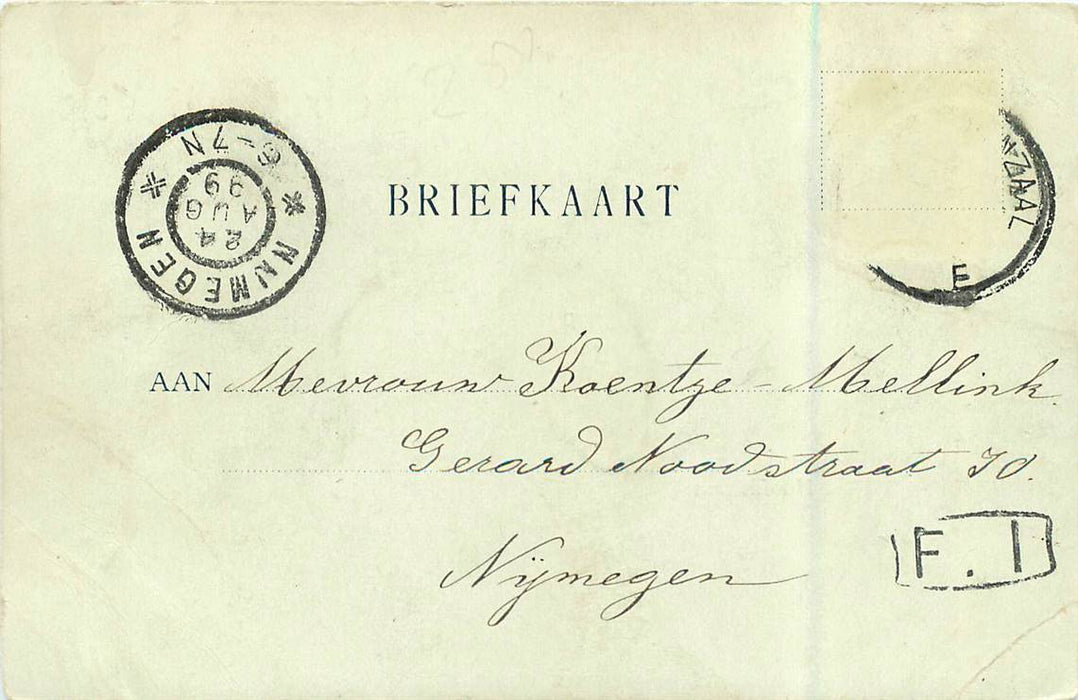 6-7N
NIJMEGEN
24
AUG
99
BRIEFKAART
NZAAL
E
AAN Mevrouw Koentze-Mellink.
Gerard Noodstraat 70.
Nijmegen
F. 1